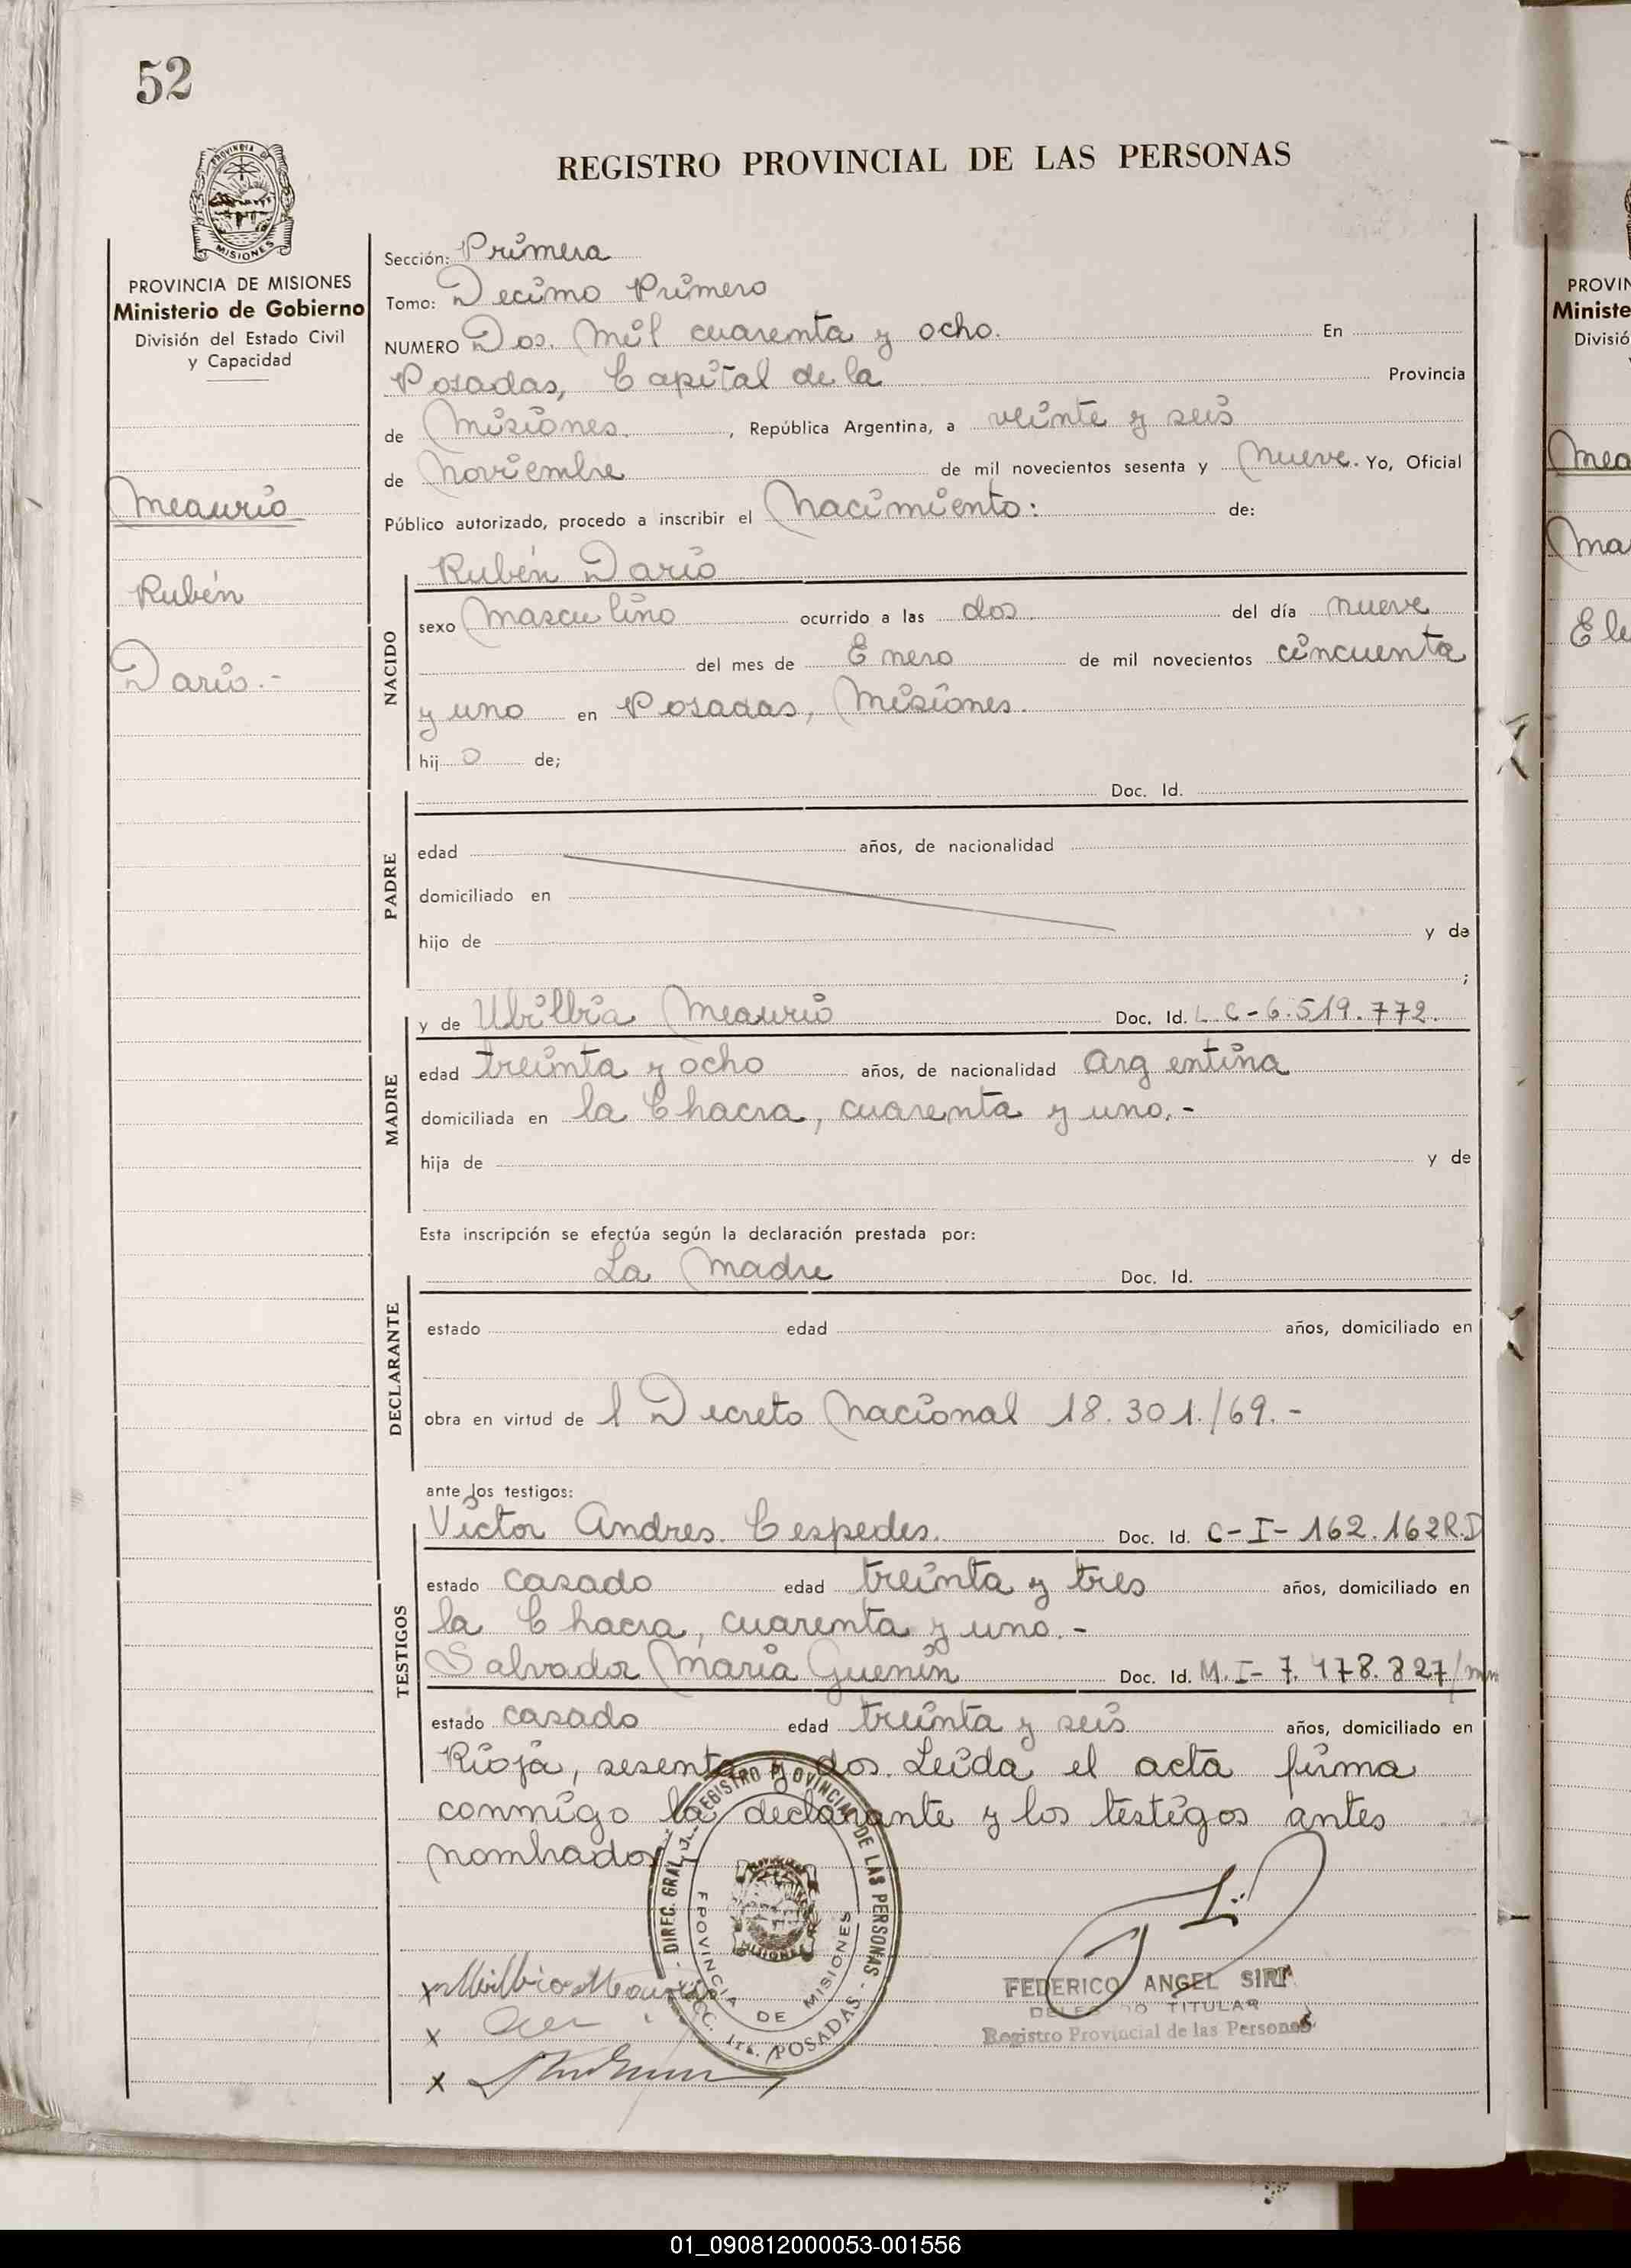 52
PROVINCIA DE
MISIONES
REGISTRO PROVINCIAL DE LAS PERSONAS
PROVINCIA DE MISIONES
Ministerio de Gobierno
División del Estado Civil
y Capacidad
Meaurio
Rubén
Dario.-
Sección: Primera
Tomo: Decimo Primero
NUMERO Dos. Mil cuarenta y ocho. En
Posadas, Capital de la Provincia
de Misiones. , República Argentina, a veinte y seis
de Noviembre de mil novecientos sesenta y Nueve. Yo, Oficial
Público autorizado, procedo a inscribir el Nacimiento: de:
NACIDO
Rubén Dario
sexo Masculino ocurrido a las dos. del día nueve
del mes de Enero de mil novecientos cincuenta
y uno en Posadas, Misiones.
hij o de;
PADRE
Doc. Id.
edad años, de nacionalidad
domiciliado en
hijo de y de
;
MADRE
y de Ubilbia Meaurio Doc. Id. L.C-6.519.772.
edad treinta y ocho años, de nacionalidad Argentina
domiciliada en la Chacra, cuarenta y uno.-
hija de y de
Esta inscripción se efectúa según la declaración prestada por:
DECLARANTE
La Madre Doc. Id.
estado edad años, domiciliado en
obra en virtud de l Decreto Nacional 18.301./69.-
ante los testigos:
TESTIGOS
Victor Andres. Cespedes. Doc. Id. C-I-162.162R.D
estado casado edad treinta y tres años, domiciliado en
la Chacra, cuarenta y uno.-
Salvador Maria Guenin Doc. Id. M.I-7.478.827/mn
estado casado edad treinta y seis años, domiciliado en
Rioja, sesenta y dos. Leida el acta firma
conmigo la declarante y los testigos antes
nombrados
DIREC. GRAL. REGISTRO PROVINCIAL DE LAS PERSONAS - POSADAS
PROVINCIA DE MISIONES
x
x
x
FEDERICO ANGEL SIRI
DELEGADO TITULAR
Registro Provincial de las Personas
PROVIN
Ministe
Divisió
Mea
Ma
Ele
01_090812000053-001556